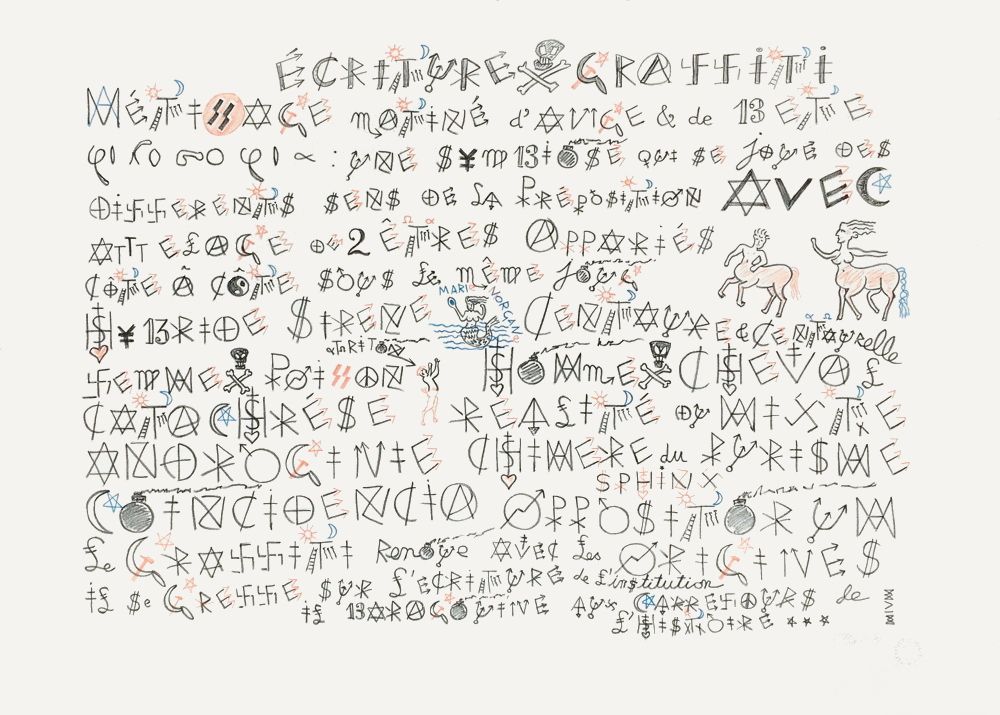 ÉCRITURE GRAFFITI
MÉTISSAGE MATINÉ d'ANGE & de BETE
φι λο σο φι α : UNE SYMBIOSE QUI SE JOUE DES
DIFFERENTS SENS DE LA PRÉPOSITION AVEC
ATTELAGE DE 2 ÊTRES APPARIÉS
CÔTE Â CÔTE SOUS Le MÊME JOUG
MARI MORGANE
HYBRIDE SIRENE CENTAURE & CENTAURelle
FEMME POISSON HOMME CHEVAL
CATACHRESE REALITÉ OU MIXITE
ANDROGINE CHIMERE du PURISME
SPHINX
COINCIDENCIA OPPOSITORUM
Le GRAFFITI Renoue AVEC Les ORIGINES
IL Se GREFFE SUR L'ECRITURE de L'institution
IL BARAGOUINE AUX CARREFOURS de
L'HISTOIRE ***